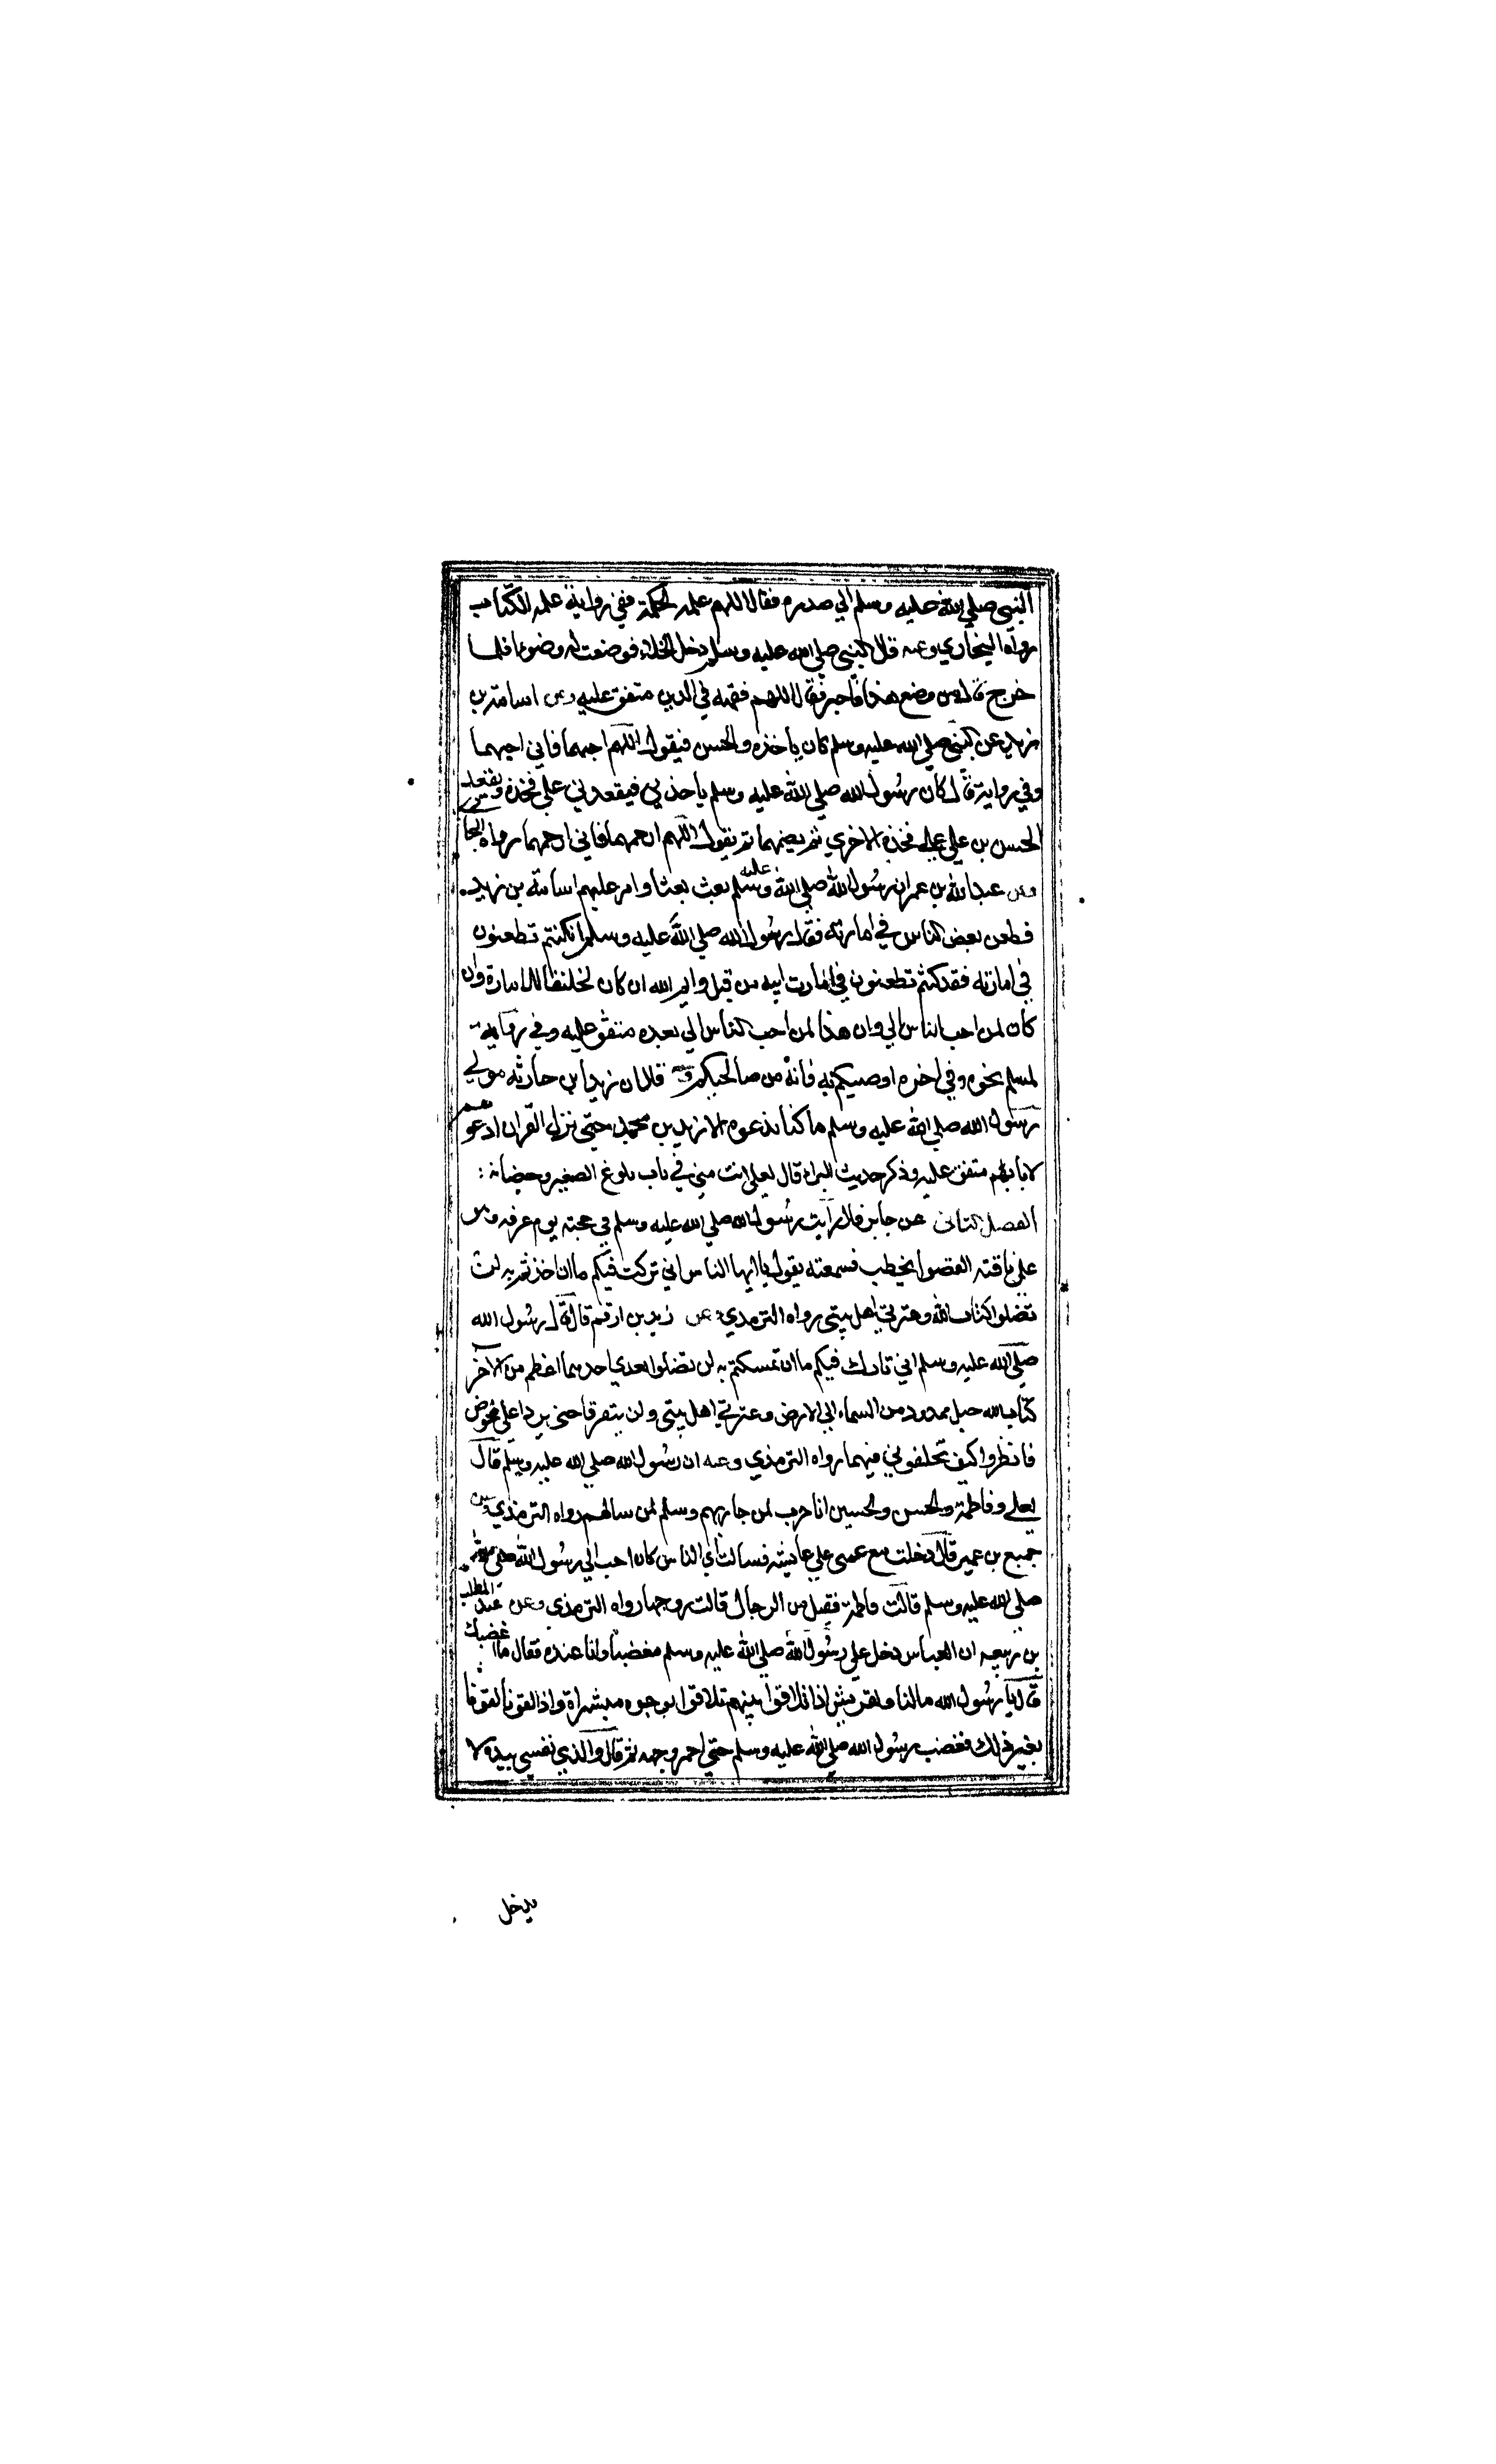 النبي صلي الله عليه وسلم الي صدره فقال اللهم علمه الحكمة ففي رواية علمه الكتاب
رواه البخاري وعنه قال النبي صلي الله عليه وسلم دخل الخلاء فوضعت له وضوءا فلما
خرج قال من وضع هذا فاخبر فقال اللهم فقهه في الدين متفق عليه وعن اسامة بن
زيد عن النبي صلي الله عليه وسلم كان ياخذه والحسن فيقول اللهم احبهما فاني احبهما
وفي رواية قال كان رسول الله صلي الله عليه وسلم ياخذني فيقعدني علي فخذه ويقعد
الحسن بن علي علي فخذه الاخري ثم يضمهما ثم يقول اللهم ارحمهما فاني ارحمهما رواه البخا
وعن عبد الله بن عمر ان رسول الله صلي الله عليه وسلم بعث بعثا وامر عليهم اسامة بن زيد
فطعن بعض الناس في امارته فقال رسول الله صلي الله عليه وسلم ان كنتم تطعنون
في امارته فقد كنتم تطعنون في امارت ابيه من قبل وايم الله ان كان لخليقا للامارة وان
كان لمن احب الناس الي وان هذا لمن احب الناس الي بعده متفق عليه وفي رواية
لمسلم نحوه وفي اخره اوصيكم به فانه من صالحيكم وعنه قال ان زيد ابن حارثه مولي
رسول الله صلي الله عليه وسلم ما كنا ندعوه الا زيد بن محمد حتي نزل القران ادعوهم
لابائهم متفق عليه وذكر حديث البراء قال لعلي انت مني في باب بلوغ الصغير وحضانه
الفصل الثاني عن جابر قال رايت رسول الله صلي الله عليه وسلم في حجته يوم عرفه وهو
علي ناقته القصوا يخطب فسمعته يقول يا ايها الناس اني تركت فيكم ما ان اخذتم به لن
تضلوا كتاب الله وعترتي اهل بيتي رواه الترمذي وعن زيد بن ارقم قال قال رسول الله
صلي الله عليه وسلم اني تارك فيكم ما ان تمسكتم به لن تضلوا بعدي احدهما اعظم من الآخر
كتاب الله حبل ممدود من السماء الي الارض وعترتي اهل بيتي ولن يتفرقا حتي يردا علي الحوض
فانظروا كيف تخلفوني فيهما رواه الترمذي وعنه ان رسول الله صلي الله عليه وسلم قال
لعلي وفاطمة والحسن والحسين انا حرب لمن حاربهم وسلم لمن سالمهم رواه الترمذي وعن
جميع بن عمير قال دخلت مع عمتي علي عايشه فسالت اي الناس كان احب الي رسول الله
صلي الله عليه وسلم قالت فاطمة فقيل من الرجال قالت زوجها رواه الترمذي وعن عبد المطلب
بن ربيعه ان العباس دخل علي رسول الله صلي الله عليه وسلم مغضبا وانا عنده فقال ما اغضبك
قال يا رسول الله ما لنا ولقريش اذا تلاقوا بينهم تلاقوا بوجوه مبشراة واذا لقونا لقونا
بغير ذلك فغضب رسول الله صلي الله عليه وسلم حتي احمر وجهه ثم قال والذي نفسي بيده لا
يدخل